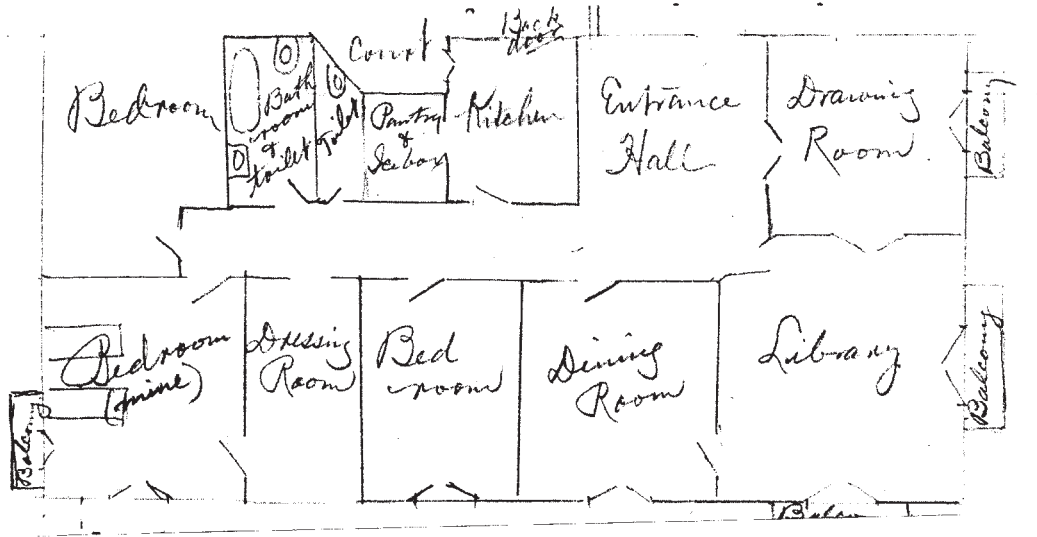 Back
door
Court
Bedroom
Bath
room
&
toilet
Toilet
Pantry
&
Icebox
Kitchen
Entrance
Hall
Drawing
Room
Balcony
Bedroom
(mine)
Dressing
Room
Bed
room
Dining
Room
Library
Balcony
Balcony
Balco